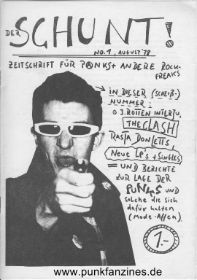 DER
SCHUNT!
NO. 1, AUGUST 78
ZEITSCHRIFT FÜR PUNKS + ANDERE ROCK-
FREAKS
IN DIESER (SCHEIß-)
NUMMER:
J. ROTTEN INTERVIU,
THE CLASH
RASTA DON LETTS
Neue LP's + Singles
UND BERICHTE
ZUR LAGE DER
PUNKS UND
solche die sich
dafür halten
(Mode-Affen)
1.-
www.punkfanzines.de